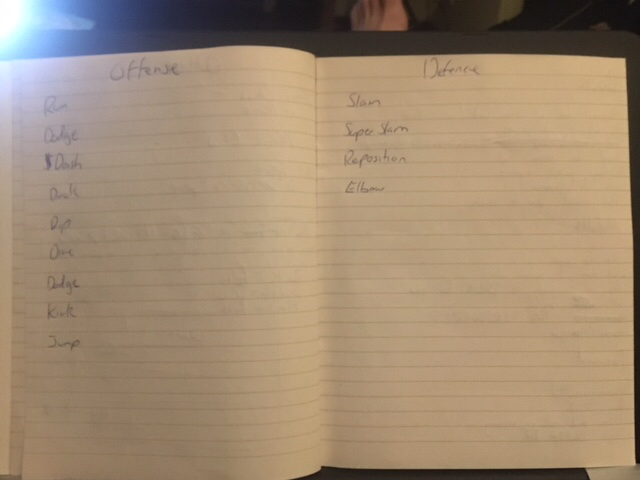 Offense
Run
Dodge
Dash
Duck
Dip
Dive
Dodge
Kick
Jump
Defence
Slam
Super Slam
Reposition
Elbow